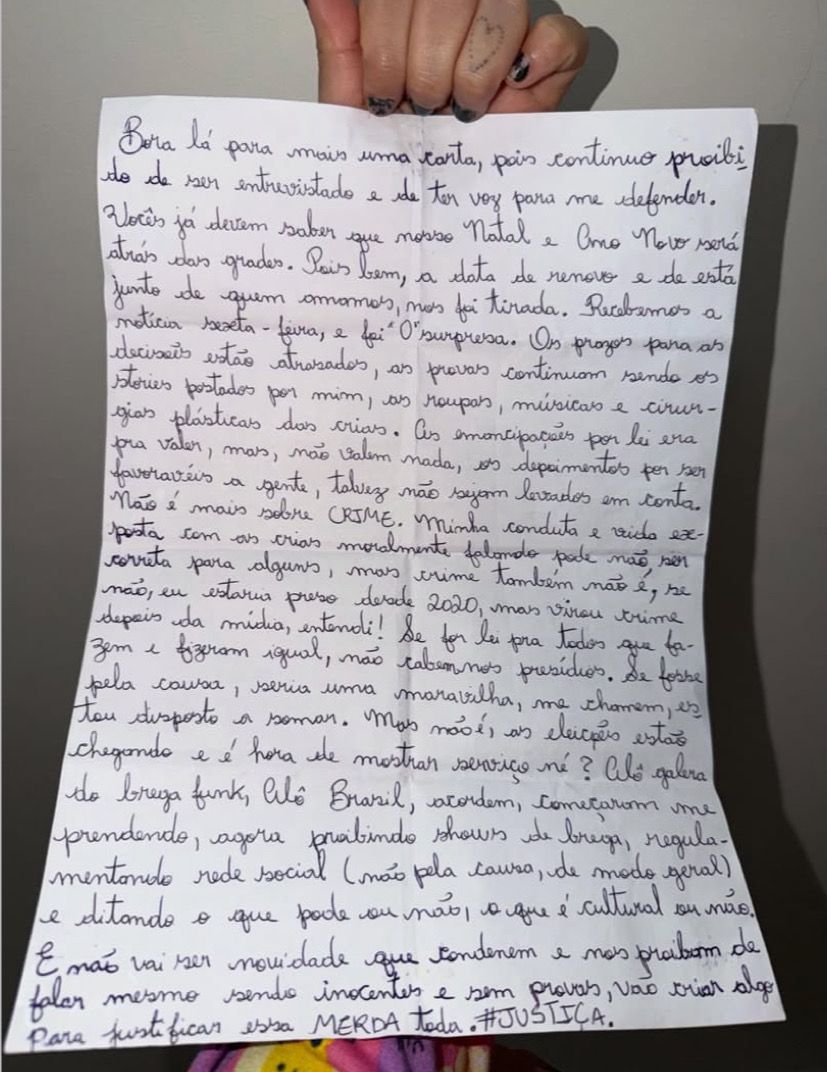 Bora lá para mais uma carta, pois continuo proibi-
do de ser entrevistado e de ter voz para me defender.
Vocês já devem saber que nosso Natal e Ano Novo será
atrás das grades. Pois bem, a data de renovo e de está
junto de quem amamos, nos foi tirada. Recebemos a
notícia sexta-feira, e foi "O" surpresa. Os prazos para as
decisões estão atrasados, as provas continuam sendo os
stories postados por mim, as roupas, músicas e cirur-
gias plásticas das crias. As emancipações por lei era
pra valer, mas, não valem nada, os depoimentos por ser
favoravéis a gente, talvez não sejam levados em conta.
Não é mais sobre CRIME. Minha conduta e vida ex-
posta com as crias moralmente falando pode não ser
correta para alguns, mas crime também não é, se
não, eu estaria preso desde 2020, mas virou crime
depois da mídia, entendi! Se for lei pra todos que fa-
zem e fizeram igual, não cabem nos presídios. Se fosse
pela causa, seria uma maravilha, me chamem, es-
tou disposto a somar. Mas não é, as eleições estão
chegando e é hora de mostrar serviço né? Alô galera
do brega funk, Alô Brasil, acordem, começaram me
prendendo, agora proibindo shows de brega, regula-
mentando rede social (não pela causa, de modo geral)
e ditando o que pode ou não, o que é cultural ou não.
E não vai ser novidade que condenem e nos proibam de
falar mesmo sendo inocentes e sem provas, vão criar algo
para justificar essa MERDA toda. #JUSTIÇA.